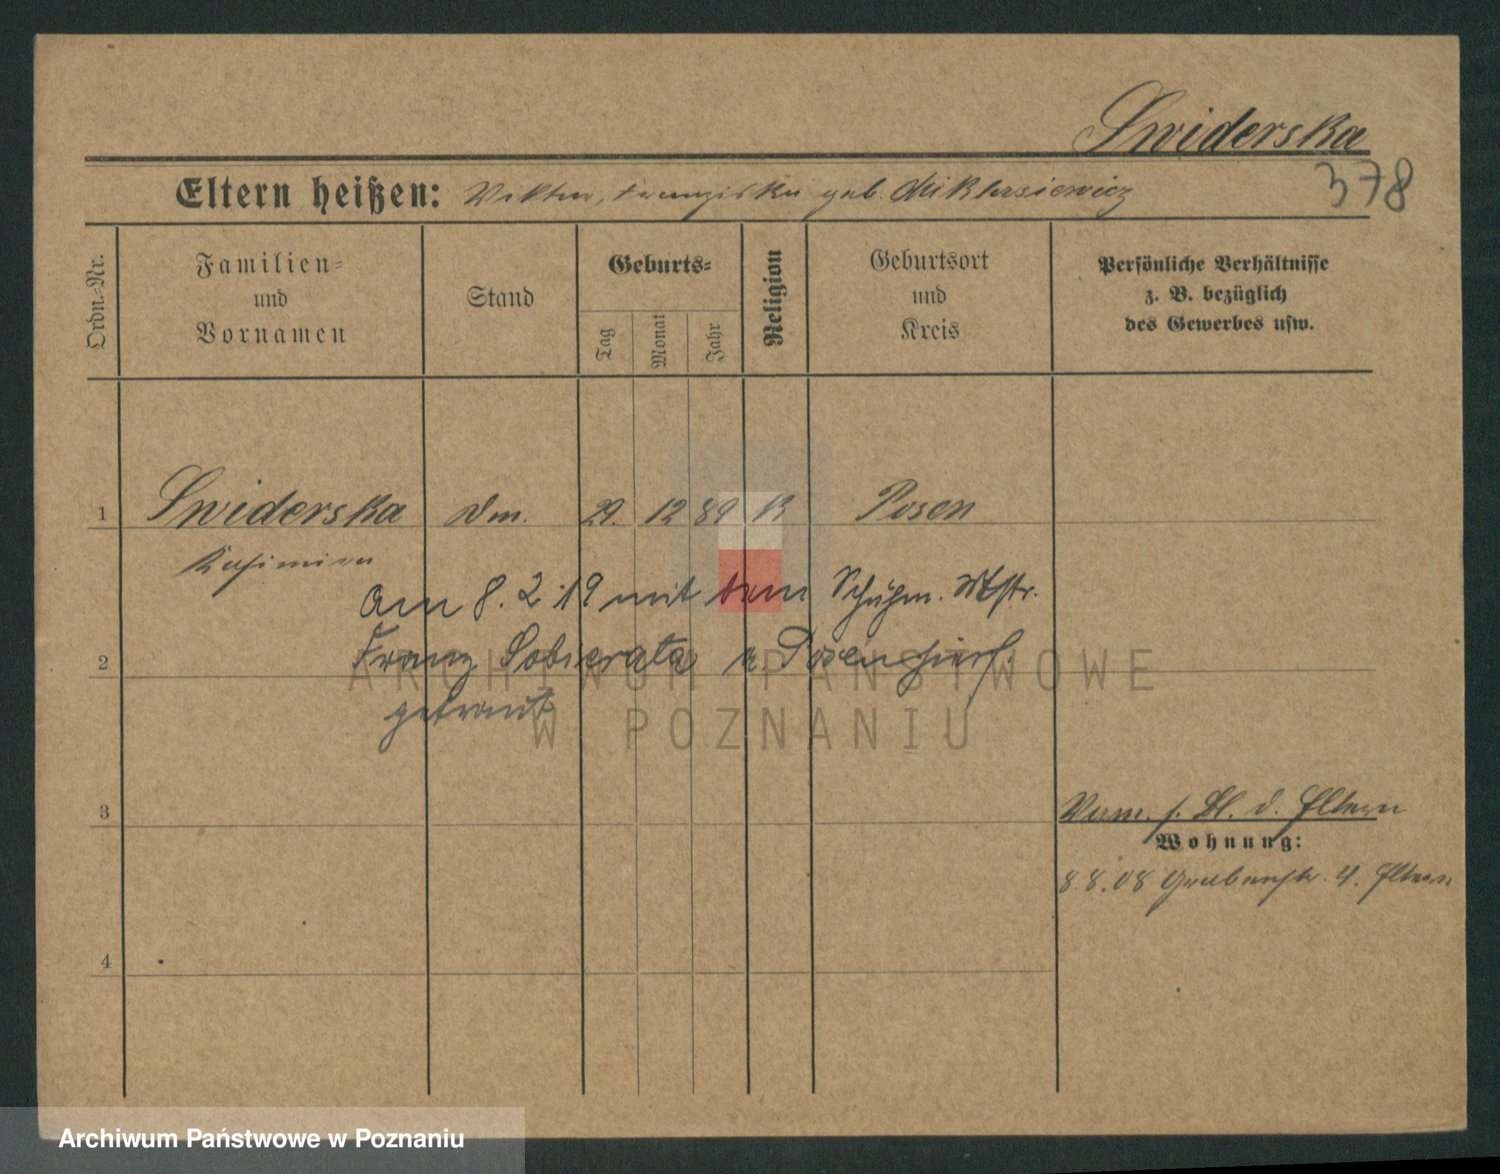 Swiderska
378
Eltern heißen: Viktor, Franziska geb. Miklasiewicz
Ordn.-Nr.
Familien-
und
Vornamen
Stand
Geburts-
Tag
Monat
Jahr
Religion
Geburtsort
und
Kreis
Persönliche Verhältnisse
z. B. bezüglich
des Gewerbes usw.
1 Swiderska 29. 12 89 K Posen
Kasimira
am 8. 2. 19 mit dem Schuhm. Mstr.
2 Franz Sobierata Posen hier
getraut
3
Verm. s. Bl. d. Eltern
Wohnung:
8.8.08 Grabenstr. 4. Eltern
4
ARCHIWUM PAŃSTWOWE
W POZNANIU
Archiwum Państwowe w Poznaniu